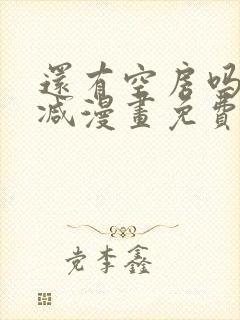 還有空房吗
减漫畫免費
党李鑫